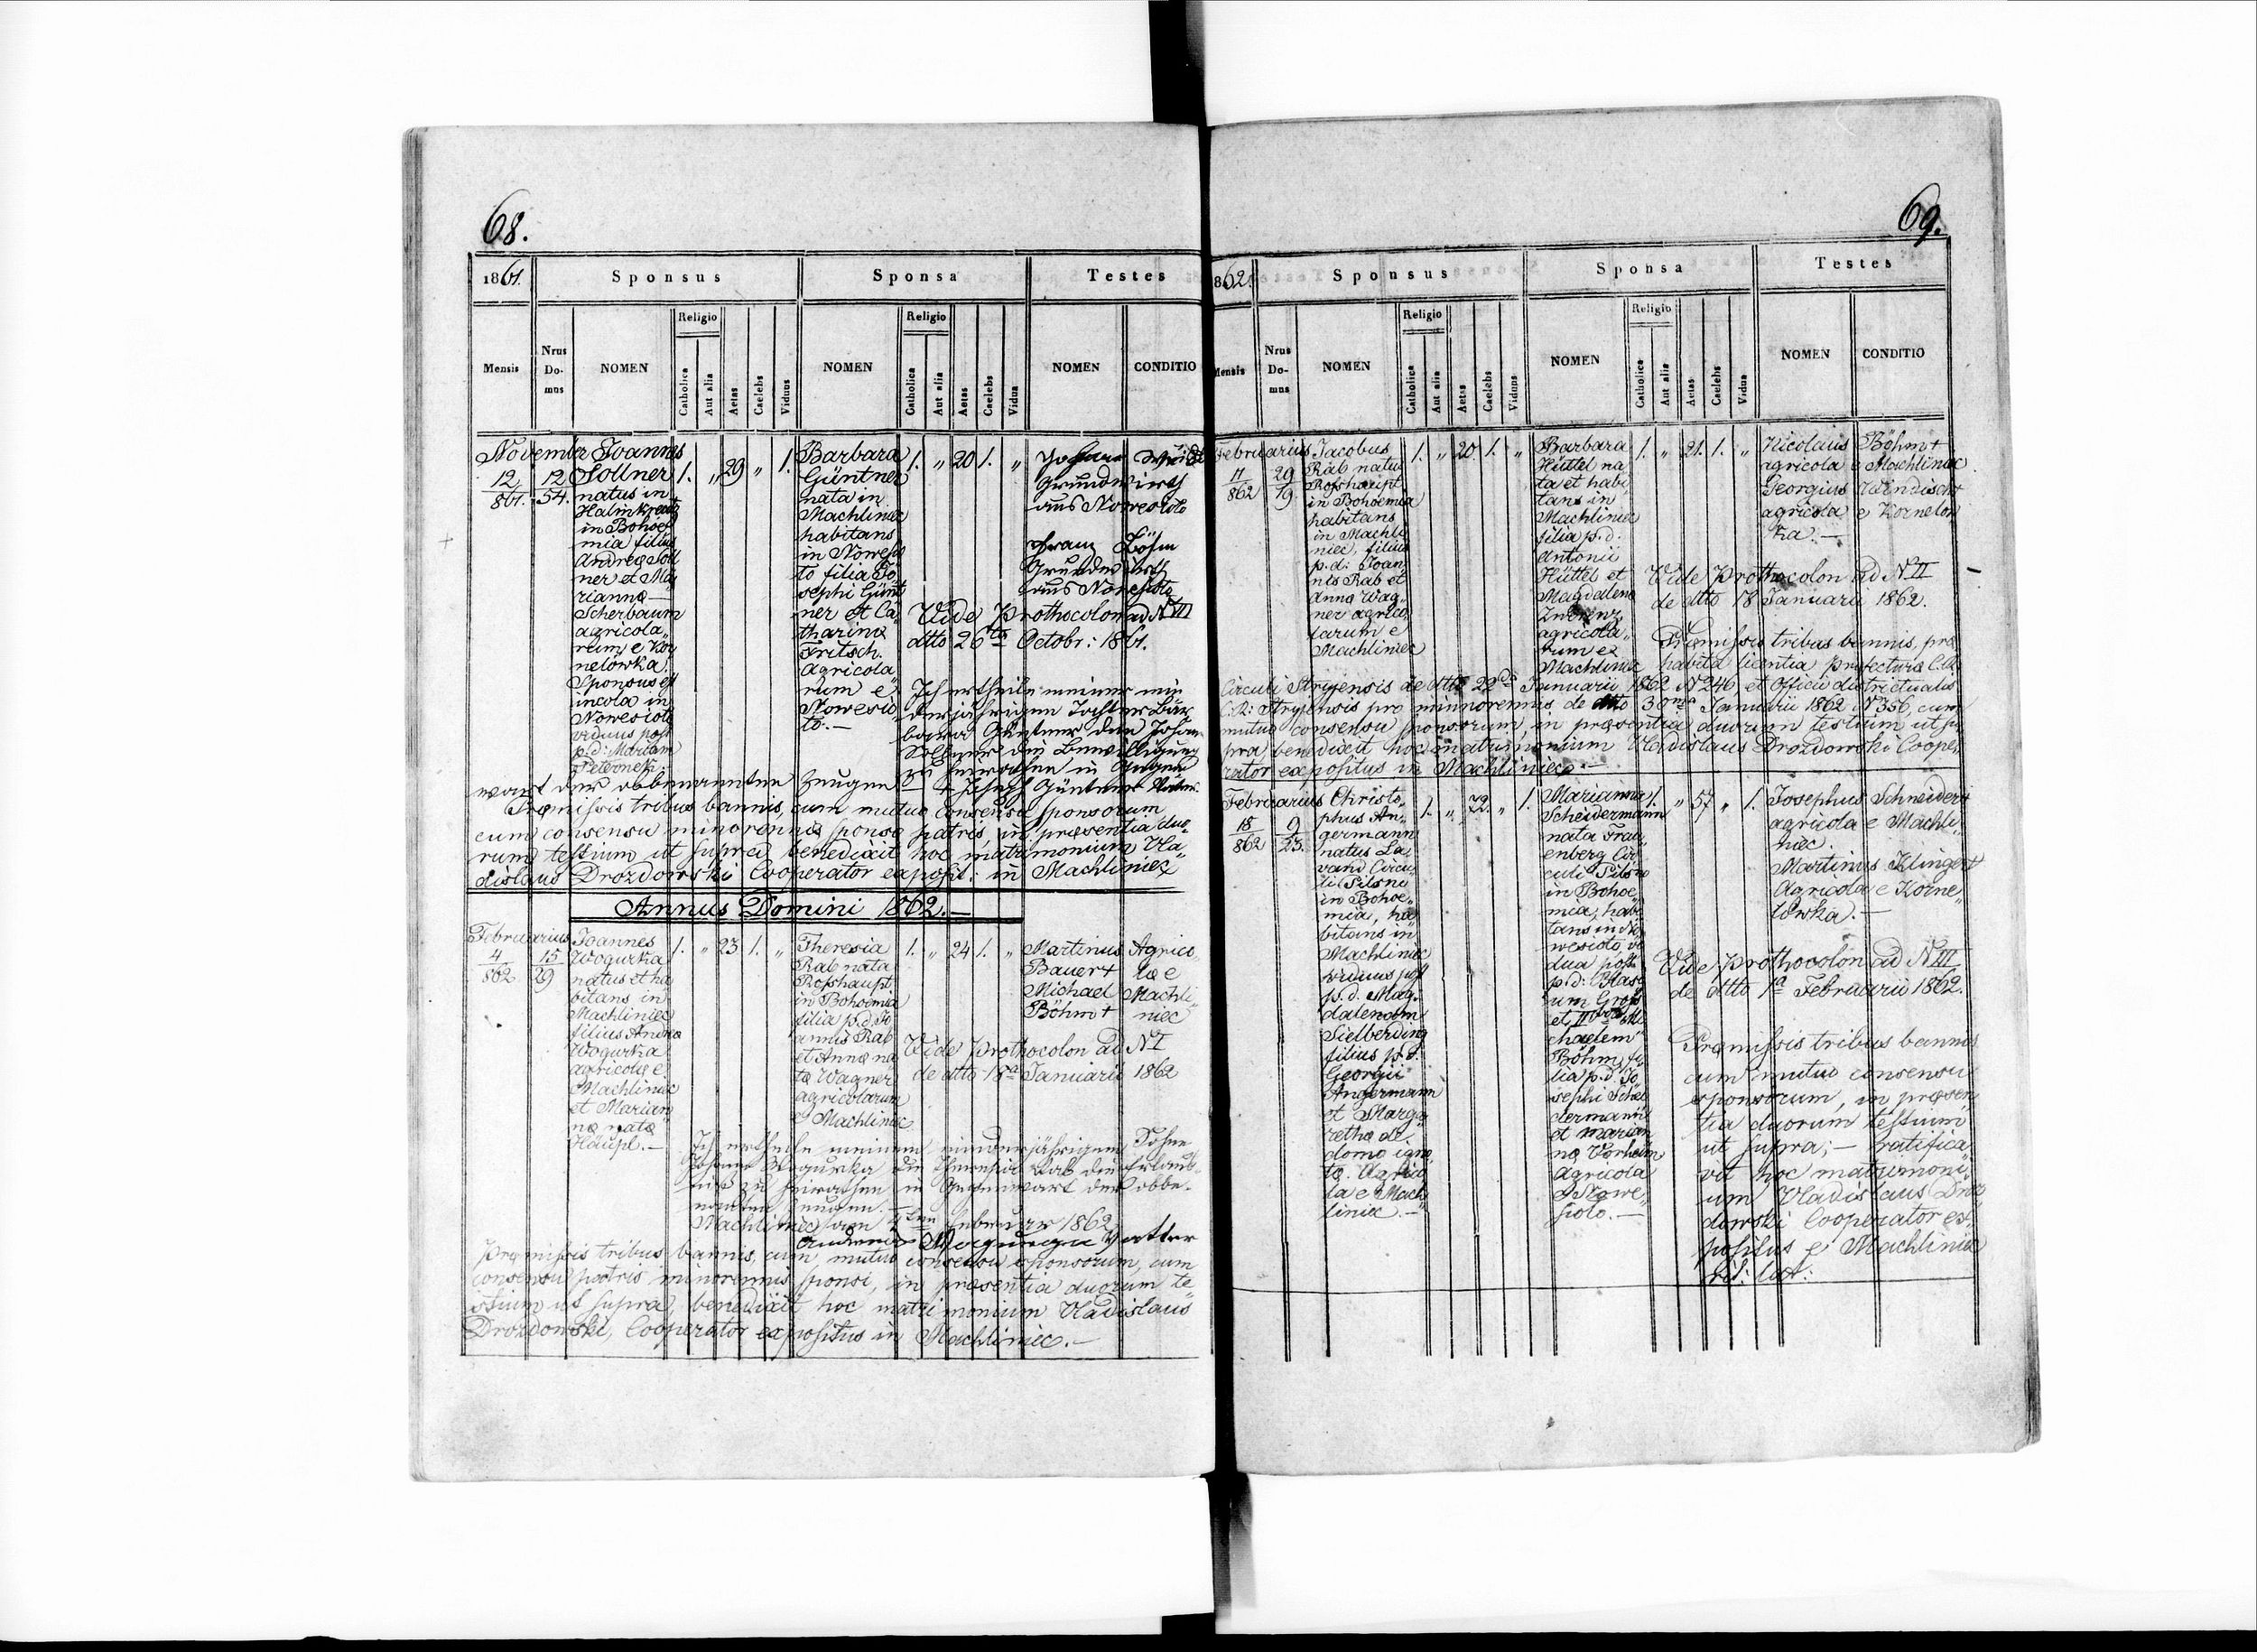 68.
1861.
Sponsus
Sponsa
Testes
Mensis
Nrus Domus
NOMEN
Religio
Catholica
Aut alia
Aetas
Caelebs
Viduus
NOMEN
Religio
Catholica
Aut alia
Aetas
Caelebs
Vidua
NOMEN
CONDITIO
November
12
861.
12
54.
Joannes
Sollner
natus in
in Bohoe
mia filius
Andreæ Soll
ner et Ma
riannæ
Scherbaum
agricola„
rum e Kor
nelowka
Sponsus est
incola in
Nowesioło
viduus post
p.d: Mariam
1. „ 29 „ 1.
Barbara
Güntner
nata in
Machliniec
habitans
in Nowesio
ło filia Jo
sephi Günt
ner et Ca„
tharinæ
Fritsch.
agricola„
rum e
Nowesio„
ło.—
1. „ 20 1. „
Grundwirth
aus Nowesioło
Franz Böhm
Grundwirth
aus Nowesioło
Vide Prothocolon ad N III
dtto 26ta Octobr: 1861.
Ich ertheile meiner min
derjährigen Tochter Bar
bara Güntner den Johan
Sollner die Bewilligung
zu heirathen in Gegen
wart der obbenannten Zeugen + Joseph Güntner Vater
Præmissis tribus bannis, cum mutuo consensu sponsorum
cum consensu minorennis sponsæ patris, in præsentia duo„
rum testium ut supra, benedixit hoc matrimonium Vla„
dislaus Drozdowski Cooperator exposit: in Machliniec
Annus Domini 1862.—
Februarius
4
862
15
29
Joannes
Wogurka
natus et ha
bitans in
Machliniec
filius Andreæ
Wogurka
agricolæ e
Machliniec
et Marian
næ natæ
Häupl.—
1. „ 23 1. „
Theresia
Rab nata
Roßhaupt
in Bohoemia
filia p.d. Jo
annis Rab
et Annæ na
tæ Wagner
agricolarum
e Machliniec
1. „ 24 1. „
Martinus Agrico
Bauer + læ e
Michael Machli„
Böhm + niec
Vide Prothocolon ad N I
de dtto 18a Januarii 1862
Ich ertheile meinem minderjährigen Sohne
Johann Wogurka die Theresia Rab die Erlaub„
niß zu heirathen in Gegenwart der obbe„
nannten Zeugen.—
Machliniec am 4ten Februar 1862
Præmissis tribus bannis, cum mutuo consensu sponsorum, cum
consensu patris minorennis sponsi, in præsentia duorum te„
stium ut supra, benedixit hoc matrimonium Vladislaus
Drozdowski, Cooperator expositus in Machliniec.—
69.
862.
Sponsus
Sponsa
Testes
Mensis
Nrus Domus
NOMEN
Religio
Catholica
Aut alia
Aetas
Caelebs
Viduus
NOMEN
Religio
Catholica
Aut alia
Aetas
Caelebs
Vidua
NOMEN
CONDITIO
Februarius
11
862
29
19
Jacobus
Rab natus
Roßhaupt
in Bohoemia
habitans
in Machli
niec, filius
p.d: Joan„
nis Rab et
Anna Wag„
ner agrico„
larum e
Machliniec
1. „ 20. 1. „
Barbara
Hüttel na
ta et habi
tans in
Machliniec
filia p.d.
Antonii
Hüttel et
Magdalena
agricola„
rum ex
Machliniec
1. „ 21. 1. „
Nicolaus Böhm +
agricola e Machliniec
Georgius Windisch +
agricola e Kornelow
ka.—
Vide Prothocolon ad N II
de dtto 18 Januarii 1862.
Præmissis tribus bannis, præ
habita licentia Præfecturæ C.R.
Circuli Stryensis de dtto 22da Januarii 1862 N 246, et Officii districtualis
C.R: Stryensis pro minorennis de dtto 30ma Januarii 1862 N 356, cum
mutuo consensu sponsorum, in præsentia duorum testium ut su
pra benedixit hoc matrimonium Vladislaus Drozdowski Coope„
rator expositus in Machliniec.—
Februarius
18
862
9
23.
Christo„
phus An„
germann
natus La
vand Circu„
li Pilsne
in Bohoe„
mia, ha
bitans in
Machliniec
viduus post
p.d. Mag„
dalenam
Sielberding
filius p.d.
Georgii
Angermann
et Marga„
rethæ de
domo igno
tæ. Agrico
la e Mach„
liniec.—
1. „ 72. „ 1.
Marianna
Scheidermann
nata Frau„
enberg Cir
culi Pilsne
in Bohoe„
mia, habi
tans in No
wesioło vi
dua post
p.d: Blasi
um Groß
et IIdo Mi
chaelem
Böhm, fi„
lia p.d. Jo
sephi Schei
dermann
et Marian
næ Vorheim
Agricola
e Nowe„
sioło.—
1. „ 57 „ 1.
Josephus Schneider +
agricola e Machli„
niec.
Martinus Klinger +
Agricola e Korne„
lowka.—
Vide Prothocolon ad N III
de dtto 1a Februarii 1862.
Præmissis tribus bannis
cum mutuo consensu
sponsorum, in præsen
tia duorum testium
ut supra;— ratifica„
vit hoc matrimoni„
um Vladislaus Droz
dowski Cooperator ex„
positus e Machliniec
rit: lat: